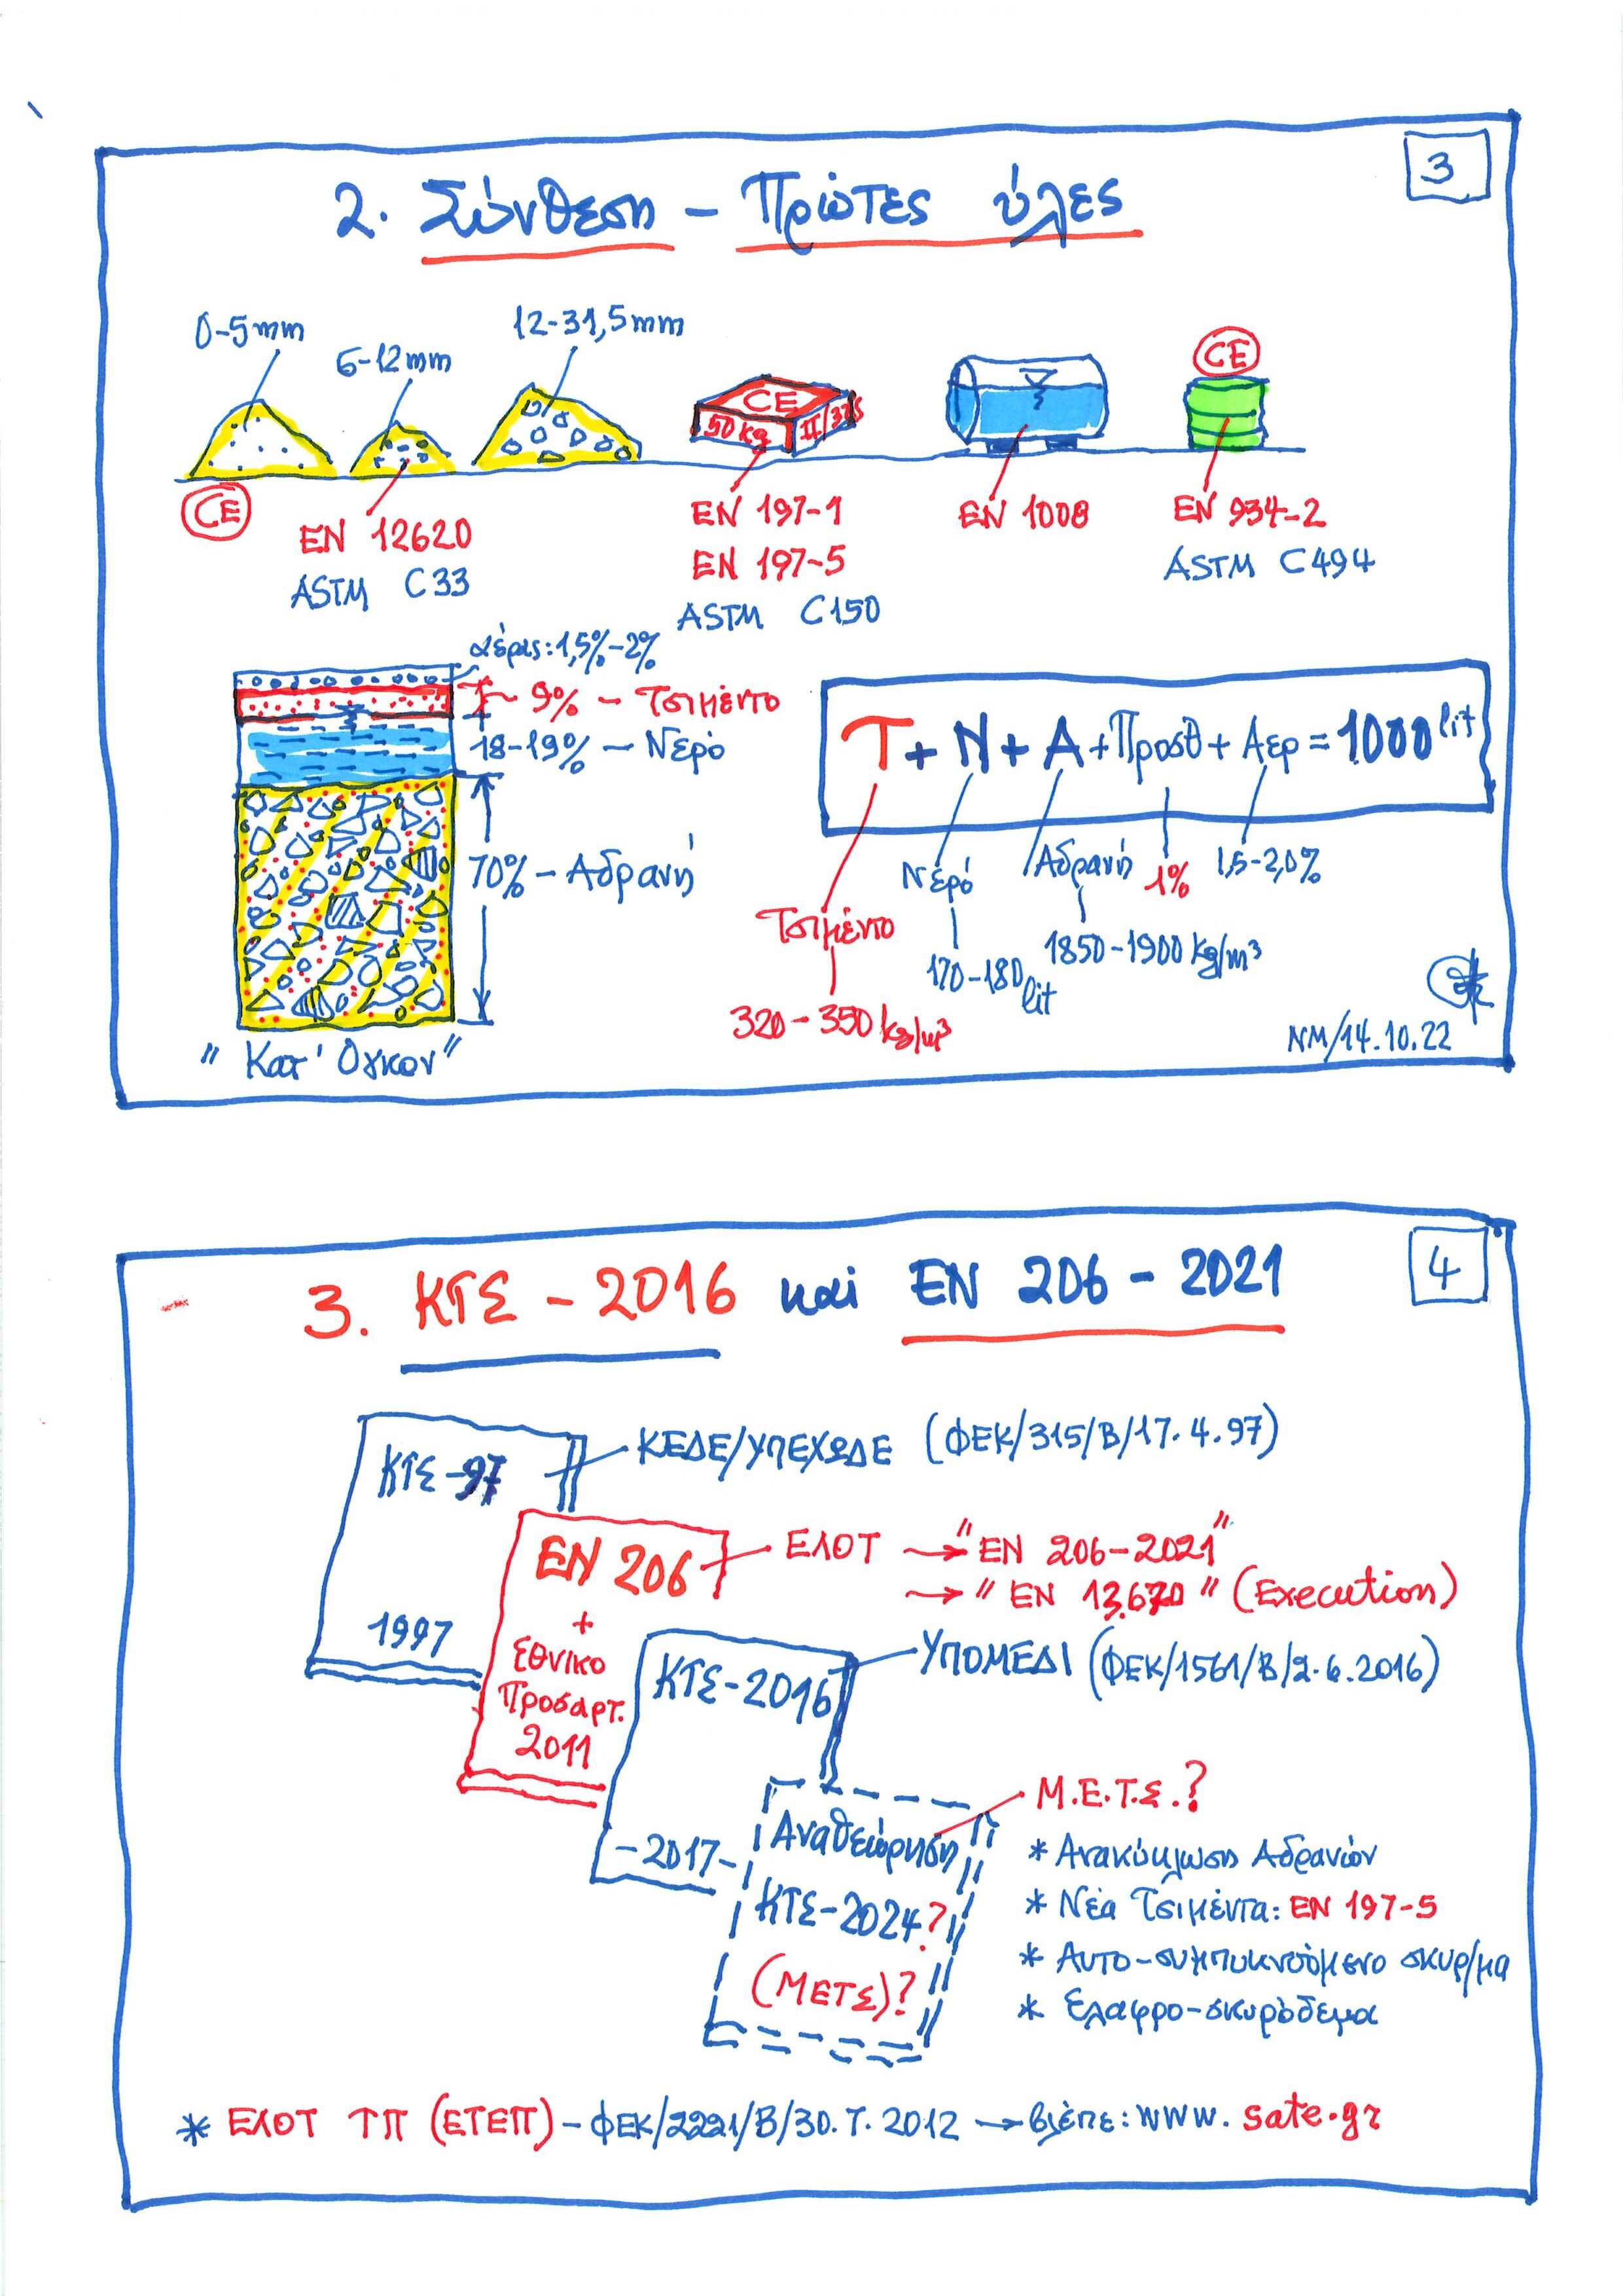 3
2. Σύνθεση - Πρώτες ύλες
0-5mm
6-12mm
12-31,5mm
CE
CE
50 kg
II/32,5
CE
EN 12620
ASTM C33
EN 197-1
EN 197-5
ASTM C150
EN 1008
EN 934-2
ASTM C494
αέρας: 1,5%-2%
9% - Τσιμέντο
18-19% - Νερό
70% - Αδρανή
"Κατ' Ογκον"
Τ + Ν + Α + Προσθ + Αερ = 1000 lit
Τσιμέντο
320-350 kg/m³
Νερό
170-180 lit
Αδρανή
1850-1900 kg/m³
1%
1,5-2,0%
NM/14.10.22
4
3. ΚΤΣ - 2016 και EN 206 - 2021
ΚΤΣ-97
1997
ΚΕΔΕ/ΥΠΕΧΩΔΕ (ΦΕΚ/315/Β/17.4.97)
EN 206
+
Εθνικο
Προσαρτ.
2011
ΕΛΟΤ → "EN 206-2021"
→ "EN 13.670" (Execution)
ΚΤΣ-2016
-2017-
ΥΠΟΜΕΔΙ (ΦΕΚ/1561/Β/2.6.2016)
Αναθεώρηση
ΚΤΣ-2024?
(ΜΕΤΣ)?
Μ.Ε.Τ.Σ.?
* Ανακύκλωση Αδρανών
* Νέα Τσιμέντα: EN 197-5
* Αυτο-συμπυκνούμενο σκυρ/μα
* Ελαφρο-σκυρόδεμα
* ΕΛΟΤ ΤΠ (ΕΤΕΠ) - ΦΕΚ/2221/Β/30.7.2012 → βλέπε: www.sate.gr